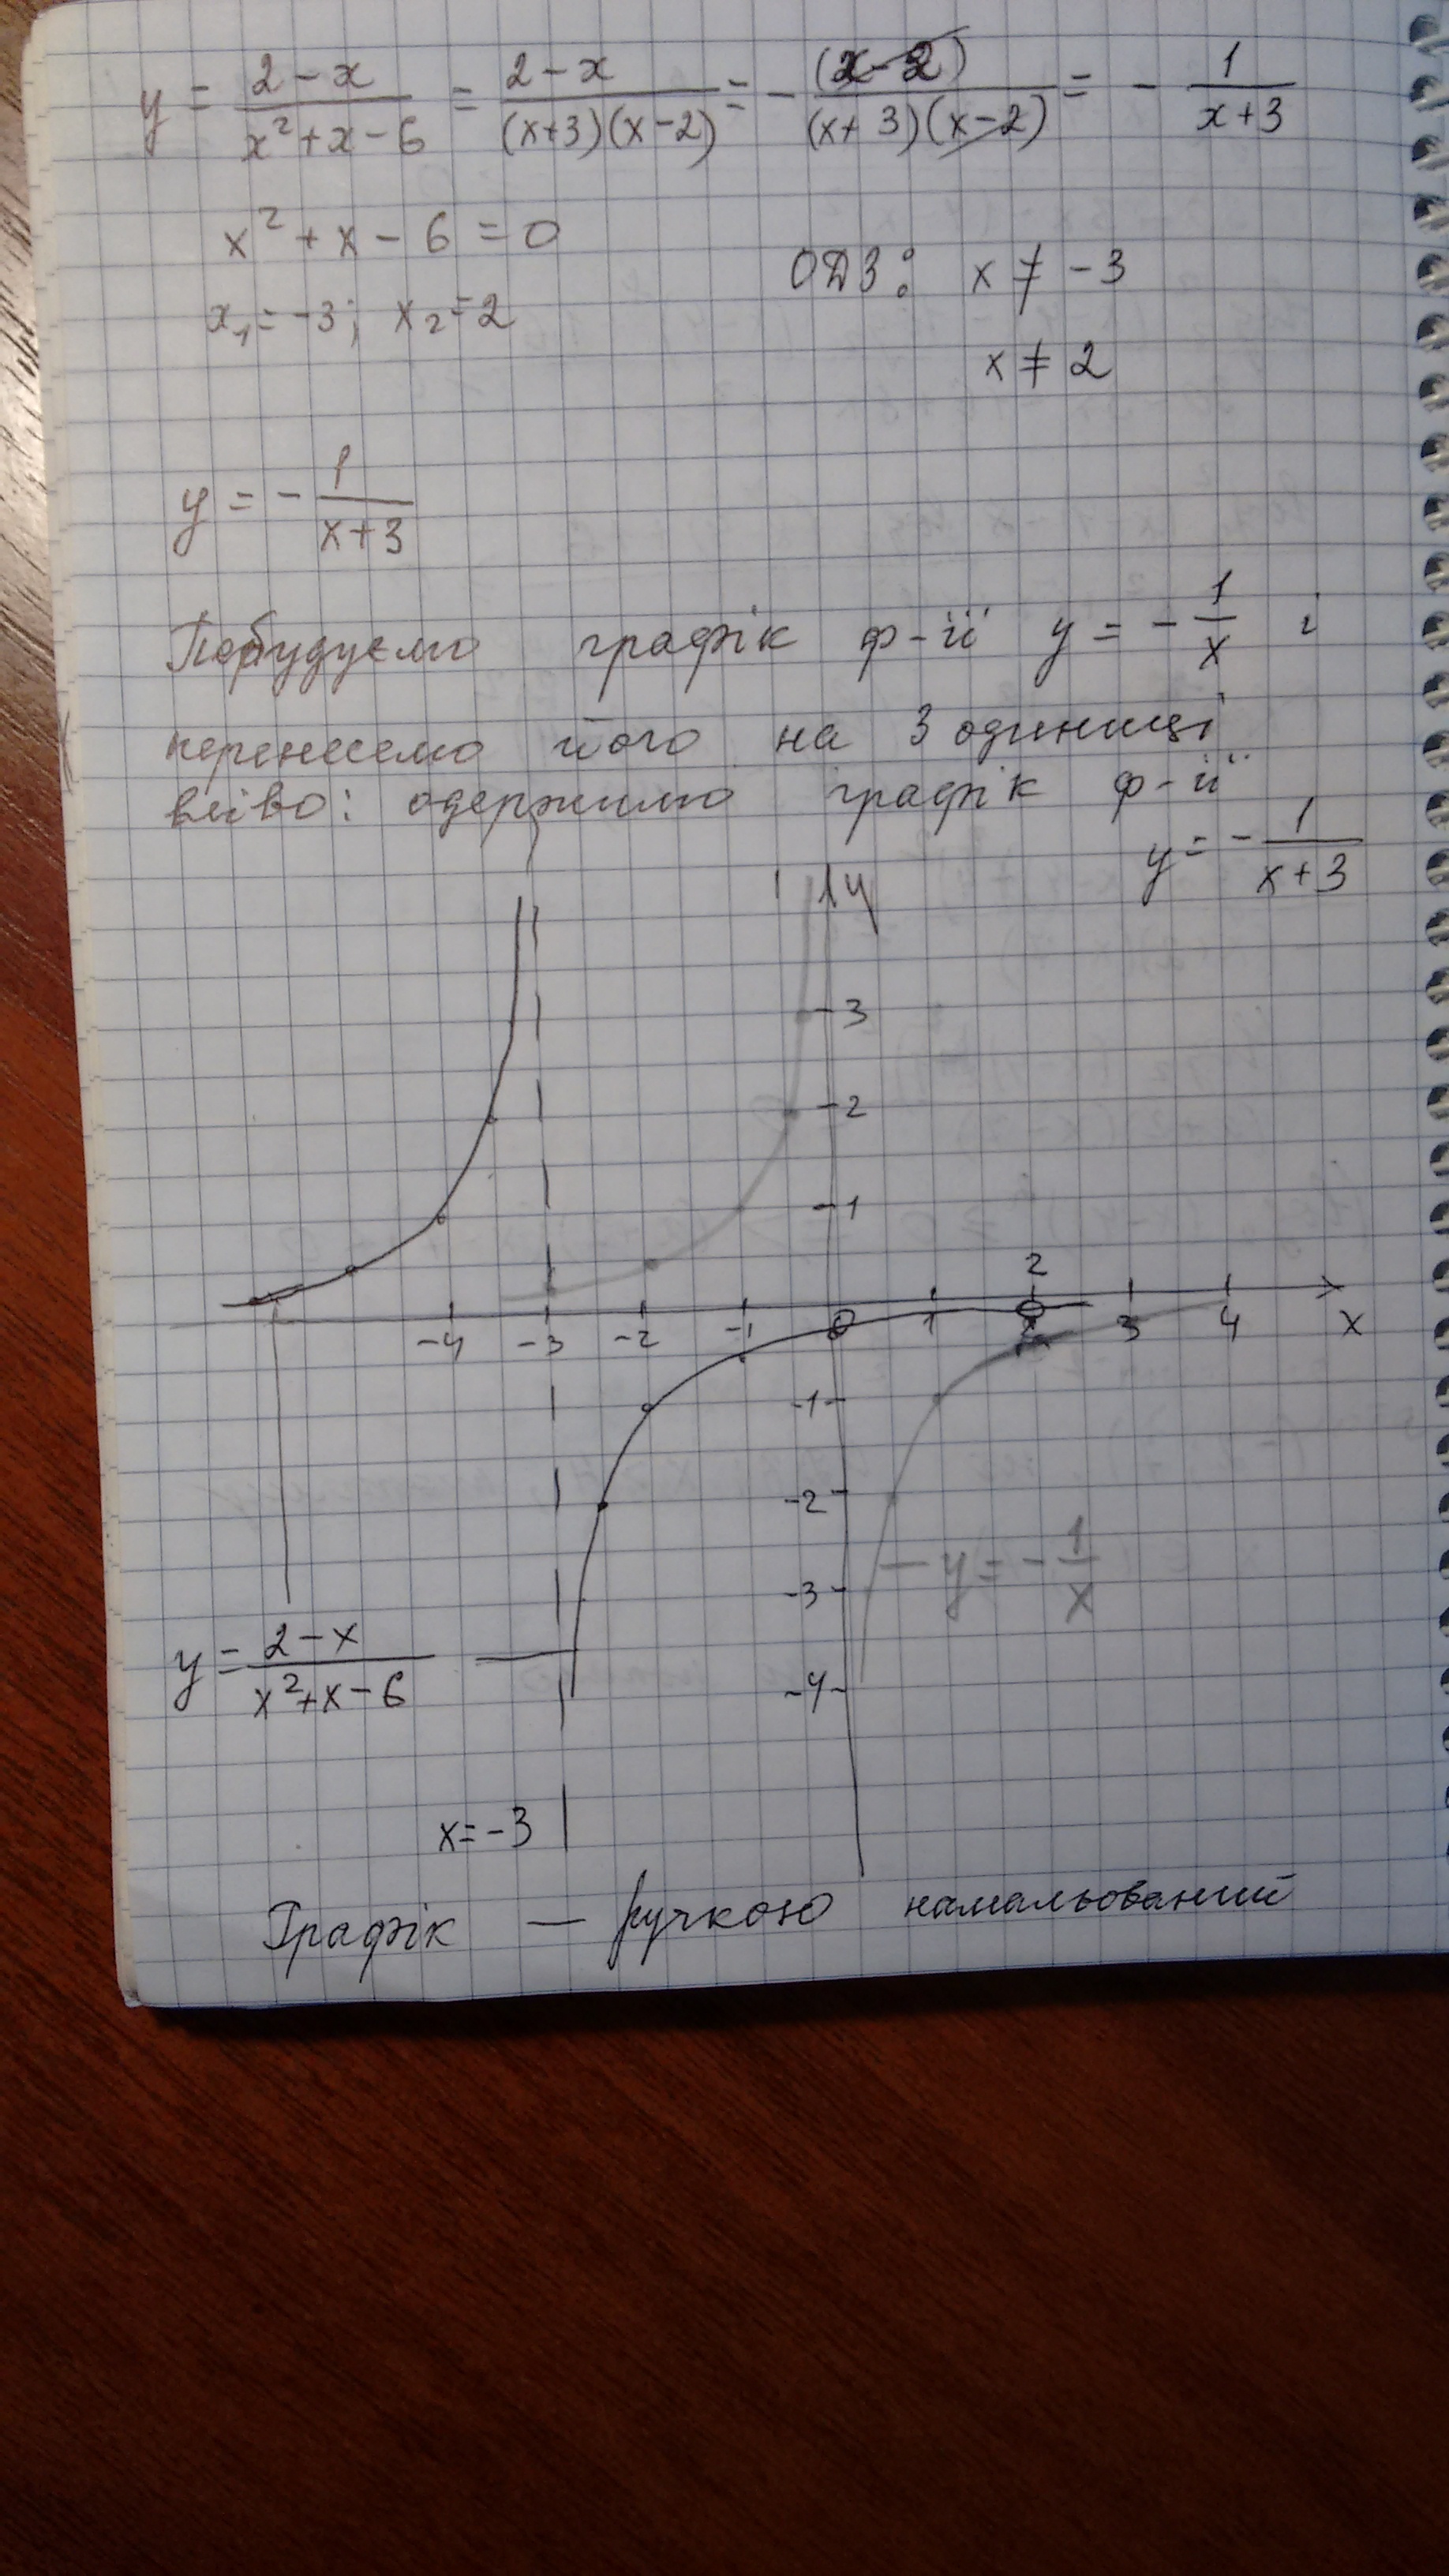 y = (2 - x)/(x² + x - 6) = (2 - x)/((x+3)(x-2)) = - (x-2)/((x+3)(x-2)) = - 1/(x+3)
x² + x - 6 = 0
ОДЗ: x ≠ -3
x₁ = -3; x₂ = 2
x ≠ 2
y = - 1/(x+3)
Побудуємо графік ф-ії y = - 1/x і
перенесемо його на 3 одиниці
вліво: одержимо графік ф-ії
y = - 1/(x+3)
y
3
2
1
2
-4 -3 -2 -1 0 1 2 3 4 x
-1
-2
y = - 1/x
-3
y = (2-x)/(x²+x-6)
-4
x = -3
Графік — ручкою намальований